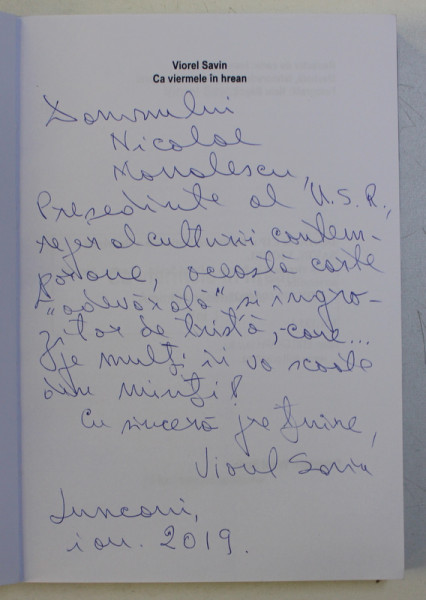 Viorel Savin
Ca viermele în hrean
Domnului
Nicolae
Manolescu,
Președinte al U.S.R.,
reper al culturii contem-
porane, această carte
"adevărată" și îngro-
zitor de tristă, -care...
pe mulți îi va scoate
din minți!
Cu sinceră prețuire,
Viorel Savin
Luncani,
ian. 2019.